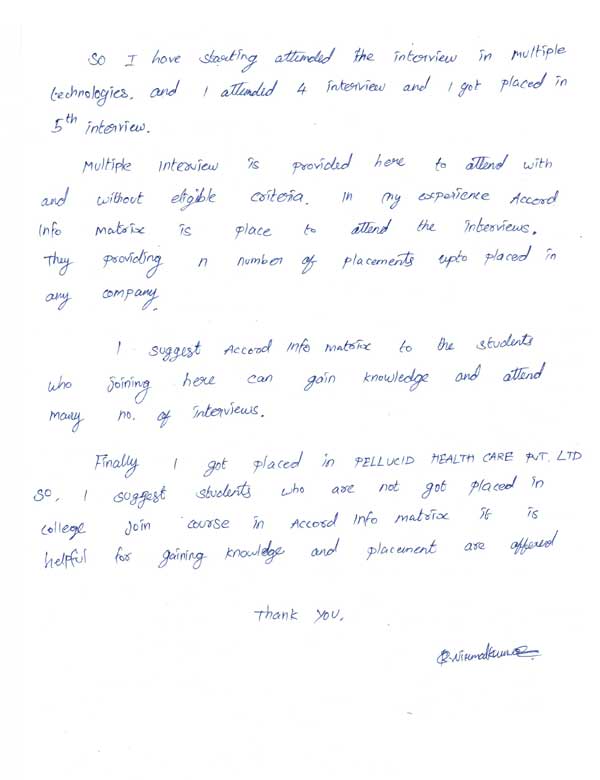 So I have starting attended the interview in multiple
technologies. and I attended 4 interview and I got placed in
5th interview.
Multiple Interview is provided here to attend with
and without eligible criteria. In my experience Accord
Info matrix is place to attend the interviews.
They providing n number of placements upto placed in
any company.
I suggest Accord Info matrix to the students
who joining here can gain knowledge and attend
many no. of interviews.
Finally I got placed in PELLUCID HEALTH CARE PVT. LTD
So, I suggest students who are not got placed in
college join course in Accord Info matrix it is
helpful for gaining knowledge and placement are offered
Thank you.
R. Nirmalkumar